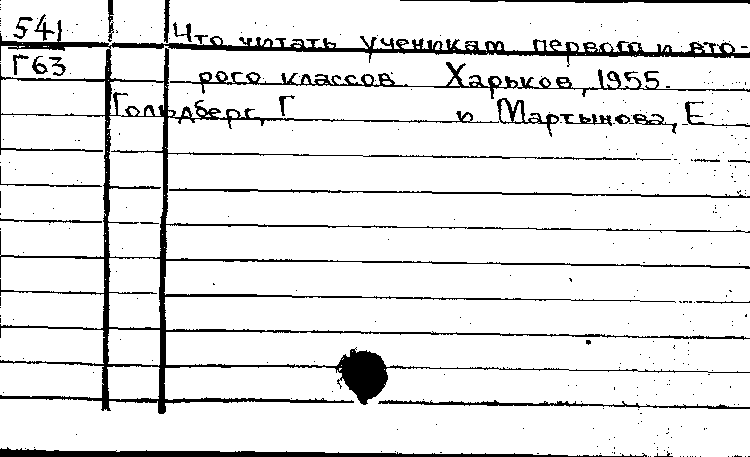 541 Что читать ученикам первого и вто-
Г63 рого классов. Харьков, 1955.
Гольдберг, Г и Мартынова, Е